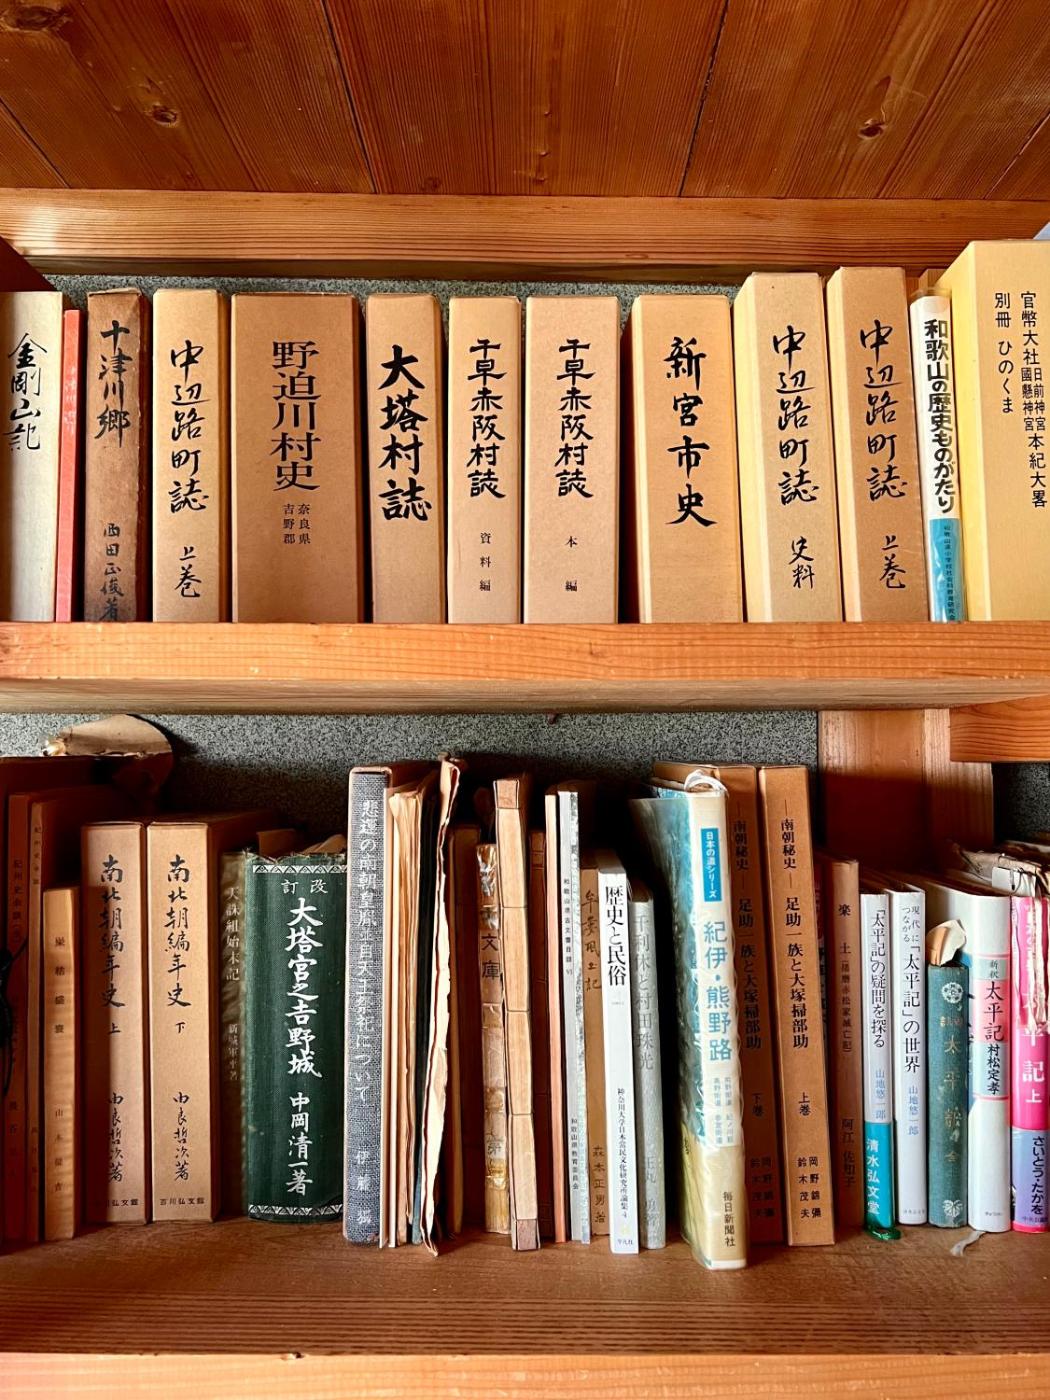 金剛山記
十津川郷 西田正俊著
中辺路町誌 上巻
野迫川村史 奈良県吉野郡
大塔村誌
千早赤阪村誌 資料編
千早赤阪村誌 本編
新宮市史
中辺路町誌 史料
中辺路町誌 上巻
和歌山の歴史ものがたり
官幣大社日前神宮國懸神宮本紀大畧
別冊 ひのくま
南北朝編年史 上 由良哲次著
南北朝編年史 下 由良哲次著 吉川弘文館
天誅組始末記
改訂 大塔宮之吉野城 中岡清一著
文庫
和歌山県古文書目録 VI 和歌山県教育委員会
森本正男著
歴史と民俗 神奈川大学日本常民文化研究所論集 平凡社
千利休と村田珠光
日本の道シリーズ 紀伊・熊野路 毎日新聞社
南朝秘史 足助一族と大塚掃部助 下巻 岡野錦彌 鈴木茂夫
―南朝秘史― 足助一族と大塚掃部助 上巻 岡野錦彌 鈴木茂夫
楽土(播磨赤松家滅亡記) 阿江佐知子
「太平記」の疑問を探る 山地悠一郎 清水弘文堂
現代につながる「太平記」の世界 山地悠一郎
新釈 太平記 村松定孝
平記 上 さいとう・たかを